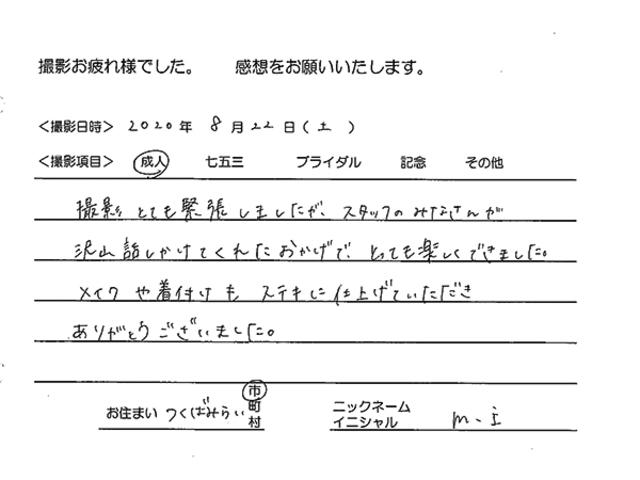 撮影お疲れ様でした。 感想をお願いいたします。
＜撮影日時＞ 2020年 8月22日(土)
＜撮影項目＞ 成人 七五三 ブライダル 記念 その他
撮影とても緊張しましたが、スタッフのみなさんが
沢山話しかけてくれたおかげで、とっても楽しくできました。
メイクや着付けもステキに仕上げていただき
ありがとうございました。
お住まい つくばみらい 市町村 ニックネーム イニシャル m.i